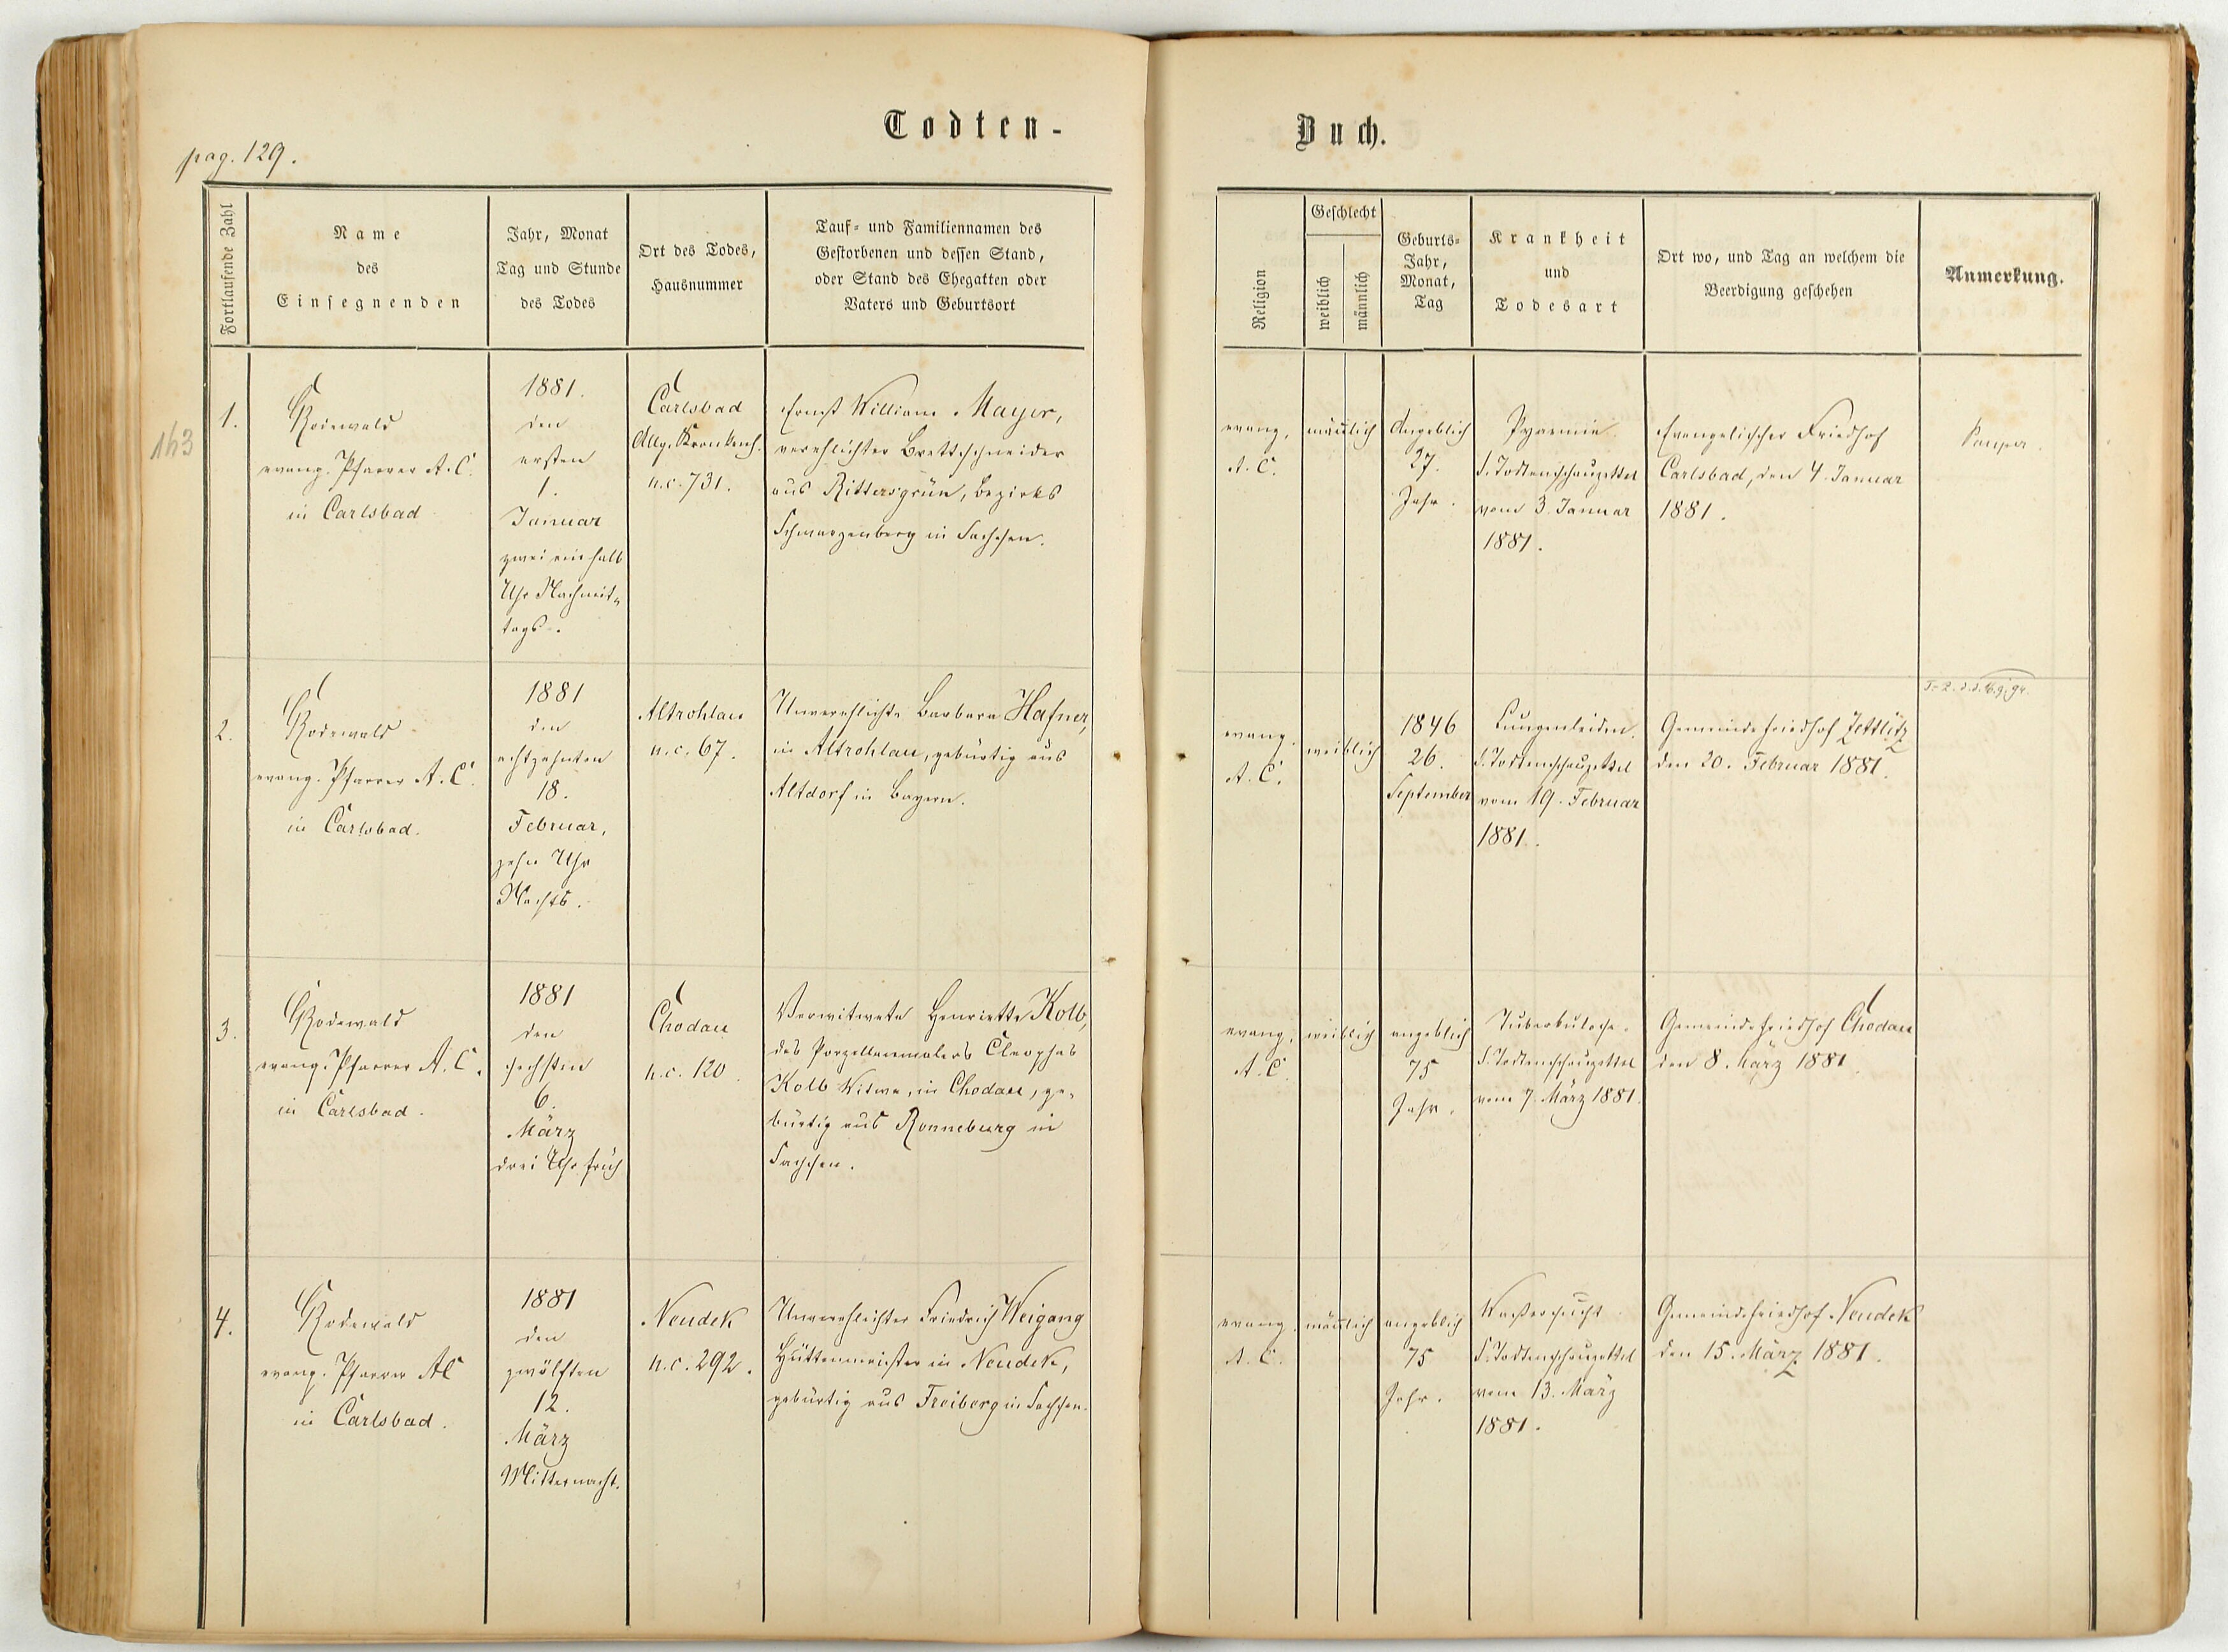 Todten-
Buch.
pag. 129.
163
Fortlaufende Zahl
Name
des
Einsegnenden
Jahr, Monat
Tag und Stunde
des Todes
Ort des Todes,
Hausnummer
Tauf- und Familiennamen des
Gestorbenen und dessen Stand,
oder Stand des Ehegatten oder
Vaters und Geburtsort
Religion
Geschlecht
weiblich
männlich
Geburts-
Jahr,
Monat,
Tag
Krankheit
und
Todesart
Ort wo, und Tag an welchem die
Beerdigung geschehen
Anmerkung.
1.
Rodewald
evang. Pfarrer A. C.
in Carlsbad
1881.
den
ersten
1.
Januar
zwei ein halb
Uhr Nachmit-
tags.
Carlsbad
Allg. Krankenh.
n.c. 731.
Ernst William Mayer,
verehlichter Brettschneider
aus Rittersgrün, Bezirks
Schwarzenberg in Sachsen.
evang.
A. C.
männlich
Angeblich
27.
Jahr.
Pyaemie
s. Todtenschauzettel
vom 3. Januar
1881.
Evangelischer Friedhof
Carlsbad, den 4. Januar
1881.
Pauper.
2.
Rodewald
evang. Pfarrer A. C.
in Carlsbad.
1881
den
achtzehnten
18.
Februar,
zehn Uhr
Nachts.
Altrohlau
n.c. 67.
Unverehlichte Barbara Hafner,
in Altrohlau, gebürtig aus
Altdorf in Bayern.
evang.
A. C.
weiblich
1846
26.
September
Lungenleiden.
s. Todtenschauzettel
vom 19. Februar
1881.
Gemeindefriedhof Zettlitz
den 20. Februar 1881.
3.
Rodewald
evang. Pfarrer A. C.
in Carlsbad.
1881
den
sechsten
6.
März
drei Uhr früh
Chodau
n.c. 120.
Verwitwete Henriette Kolb,
des Porzellanmalers Cleophas
Kolb Witwe, in Chodau, ge-
bürtig aus Ronneburg in
Sachsen.
evang.
A. C.
weiblich
angeblich
75
Jahr.
Tuberkulose.
s. Todtenschauzettel
vom 7. März 1881.
Gemeindefriedhof Chodau
den 8. März 1881.
4.
Rodewald
evang. Pfarrer AC
in Carlsbad.
1881
den
zwölften
12.
März
Mitternacht.
Neudek
n.c. 292.
Unverehlichter Friedrich Weigang
Hüttenmeister in Neudek,
gebürtig aus Freiberg in Sachsen.
evang.
A. C.
männlich
angeblich
75
Jahr.
Wassersucht
s. Todtenschauzettel
vom 13. März
1881.
Gemeindefriedhof Neudek
den 15. März 1881.